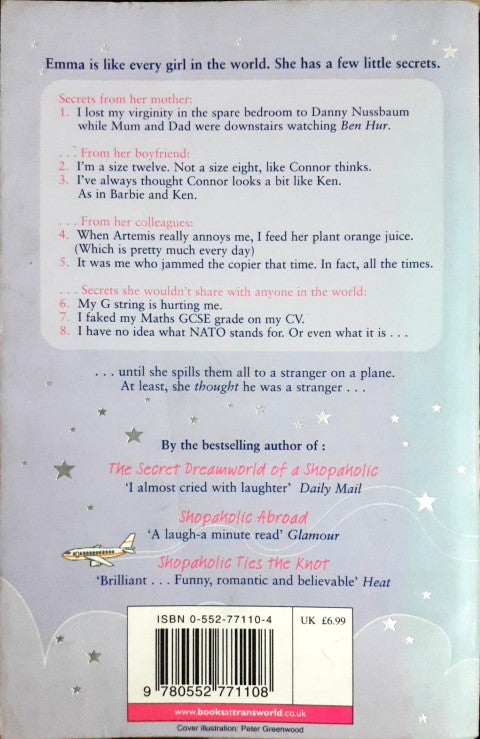 Emma is like every girl in the world. She has a few little secrets.
Secrets from her mother:
1. I lost my virginity in the spare bedroom to Danny Nussbaum
while Mum and Dad were downstairs watching Ben Hur.
. . . From her boyfriend:
2. I'm a size twelve. Not a size eight, like Connor thinks.
3. I've always thought Connor looks a bit like Ken.
As in Barbie and Ken.
. . . From her colleagues:
4. When Artemis really annoys me, I feed her plant orange juice.
(Which is pretty much every day)
5. It was me who jammed the copier that time. In fact, all the times.
. . . Secrets she wouldn't share with anyone in the world:
6. My G string is hurting me.
7. I faked my Maths GCSE grade on my CV.
8. I have no idea what NATO stands for. Or even what it is . . .
. . . until she spills them all to a stranger on a plane.
At least, she thought he was a stranger . . .
By the bestselling author of :
The Secret Dreamworld of a Shopaholic
'I almost cried with laughter' Daily Mail
Shopaholic Abroad
'A laugh-a minute read' Glamour
Shopaholic Ties the Knot
'Brilliant . . . Funny, romantic and believable' Heat
ISBN 0-552-77110-4
UK £6.99
9 780552 771108
www.booksattransworld.co.uk
Cover illustration: Peter Greenwood